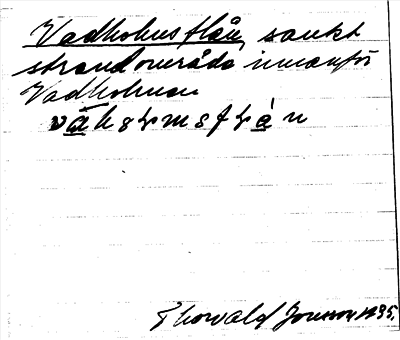 Vadholmsflån, sankt
strandområde innanför
Vadholmen
Thorvald Jonsson 1935.